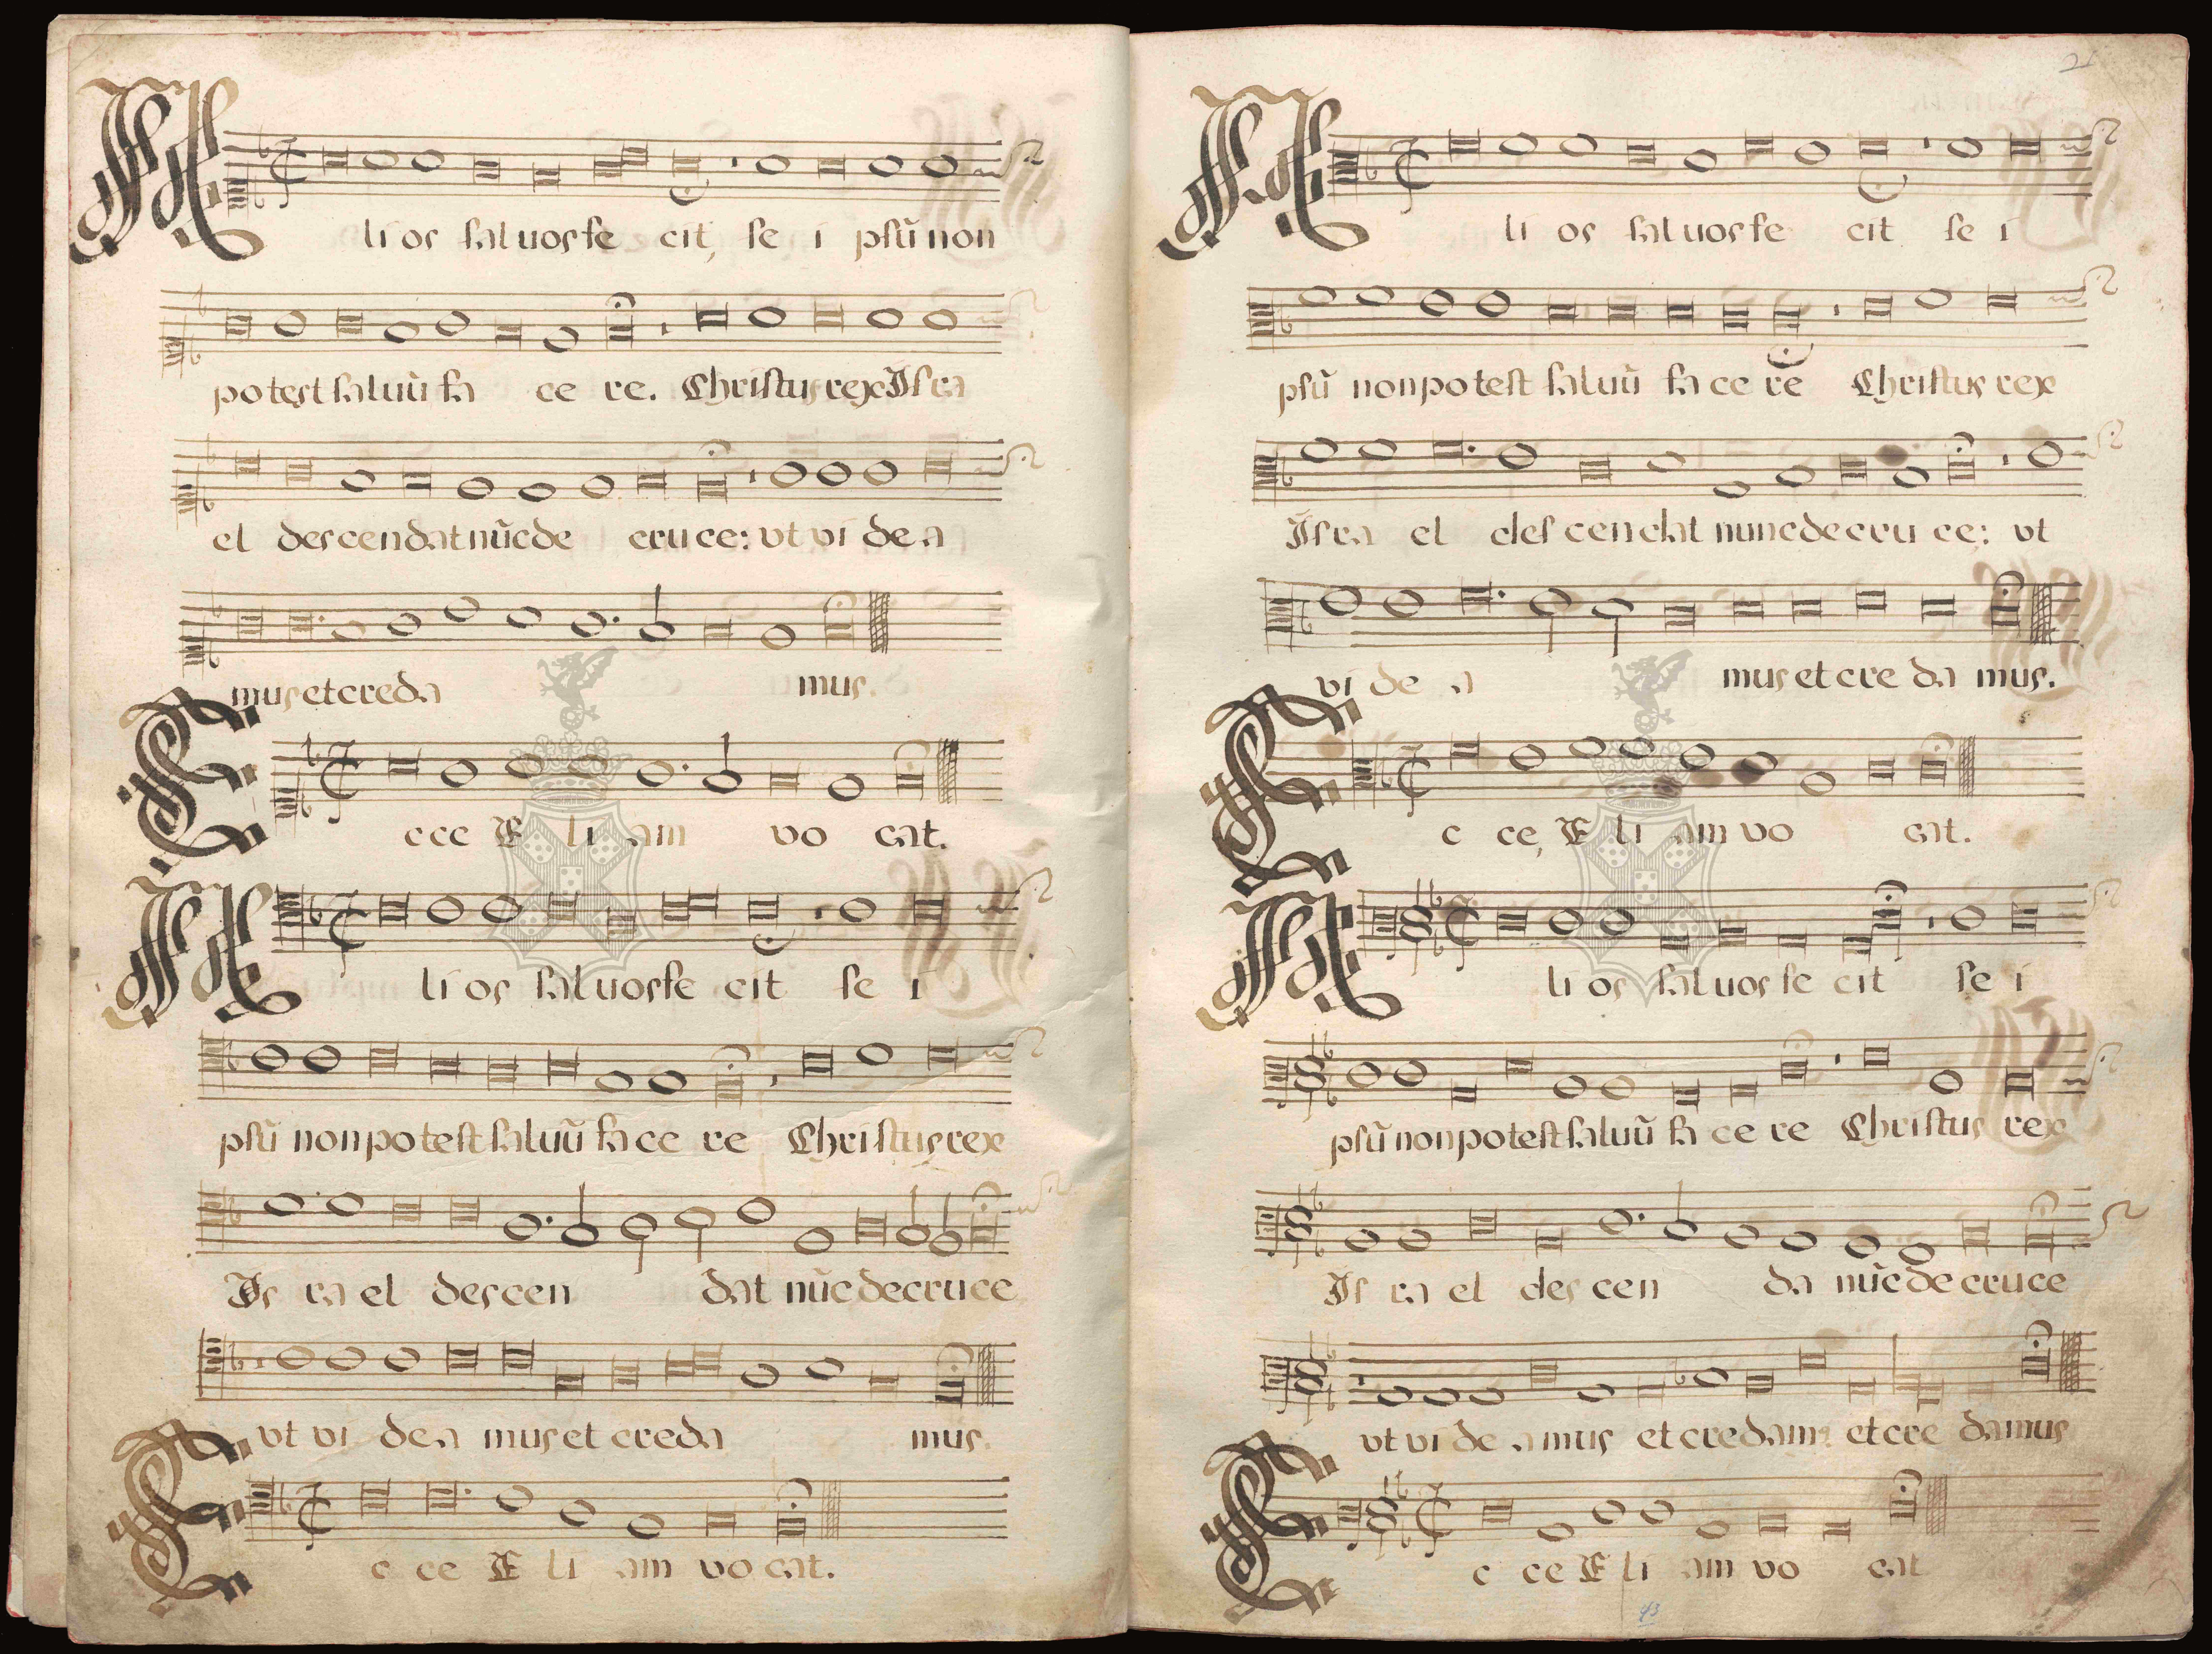 Alios saluos fe cit, se i psũ non
potest saluũ fa ce re. Christus rex Isra
el descendat nũc de cruce: vt vi de a
mus et creda mus.
Ecce E li am vo cat.
Alios saluos fe cit se i
psũ non potest saluũ fa ce re Christus rex
Is ra el descen dat nũc de cruce
vt vi de a mus et creda mus.
Ec ce E li am vo cat.
21
Ali os saluos fe cit se i
psũ non potest saluũ fa ce re Christus rex
Isra el descendat nunc de cru ce: vt
vi de a mus et cre da mus.
Ec ce, E li am vo cat.
Ali os saluos fe cit se i
psũ non potest saluũ fa ce re Christus rex
Is ra el des cen da nũc de cruce
vt vi de a mus et credam? et cre damus
Ec ce E li am vo cat
43